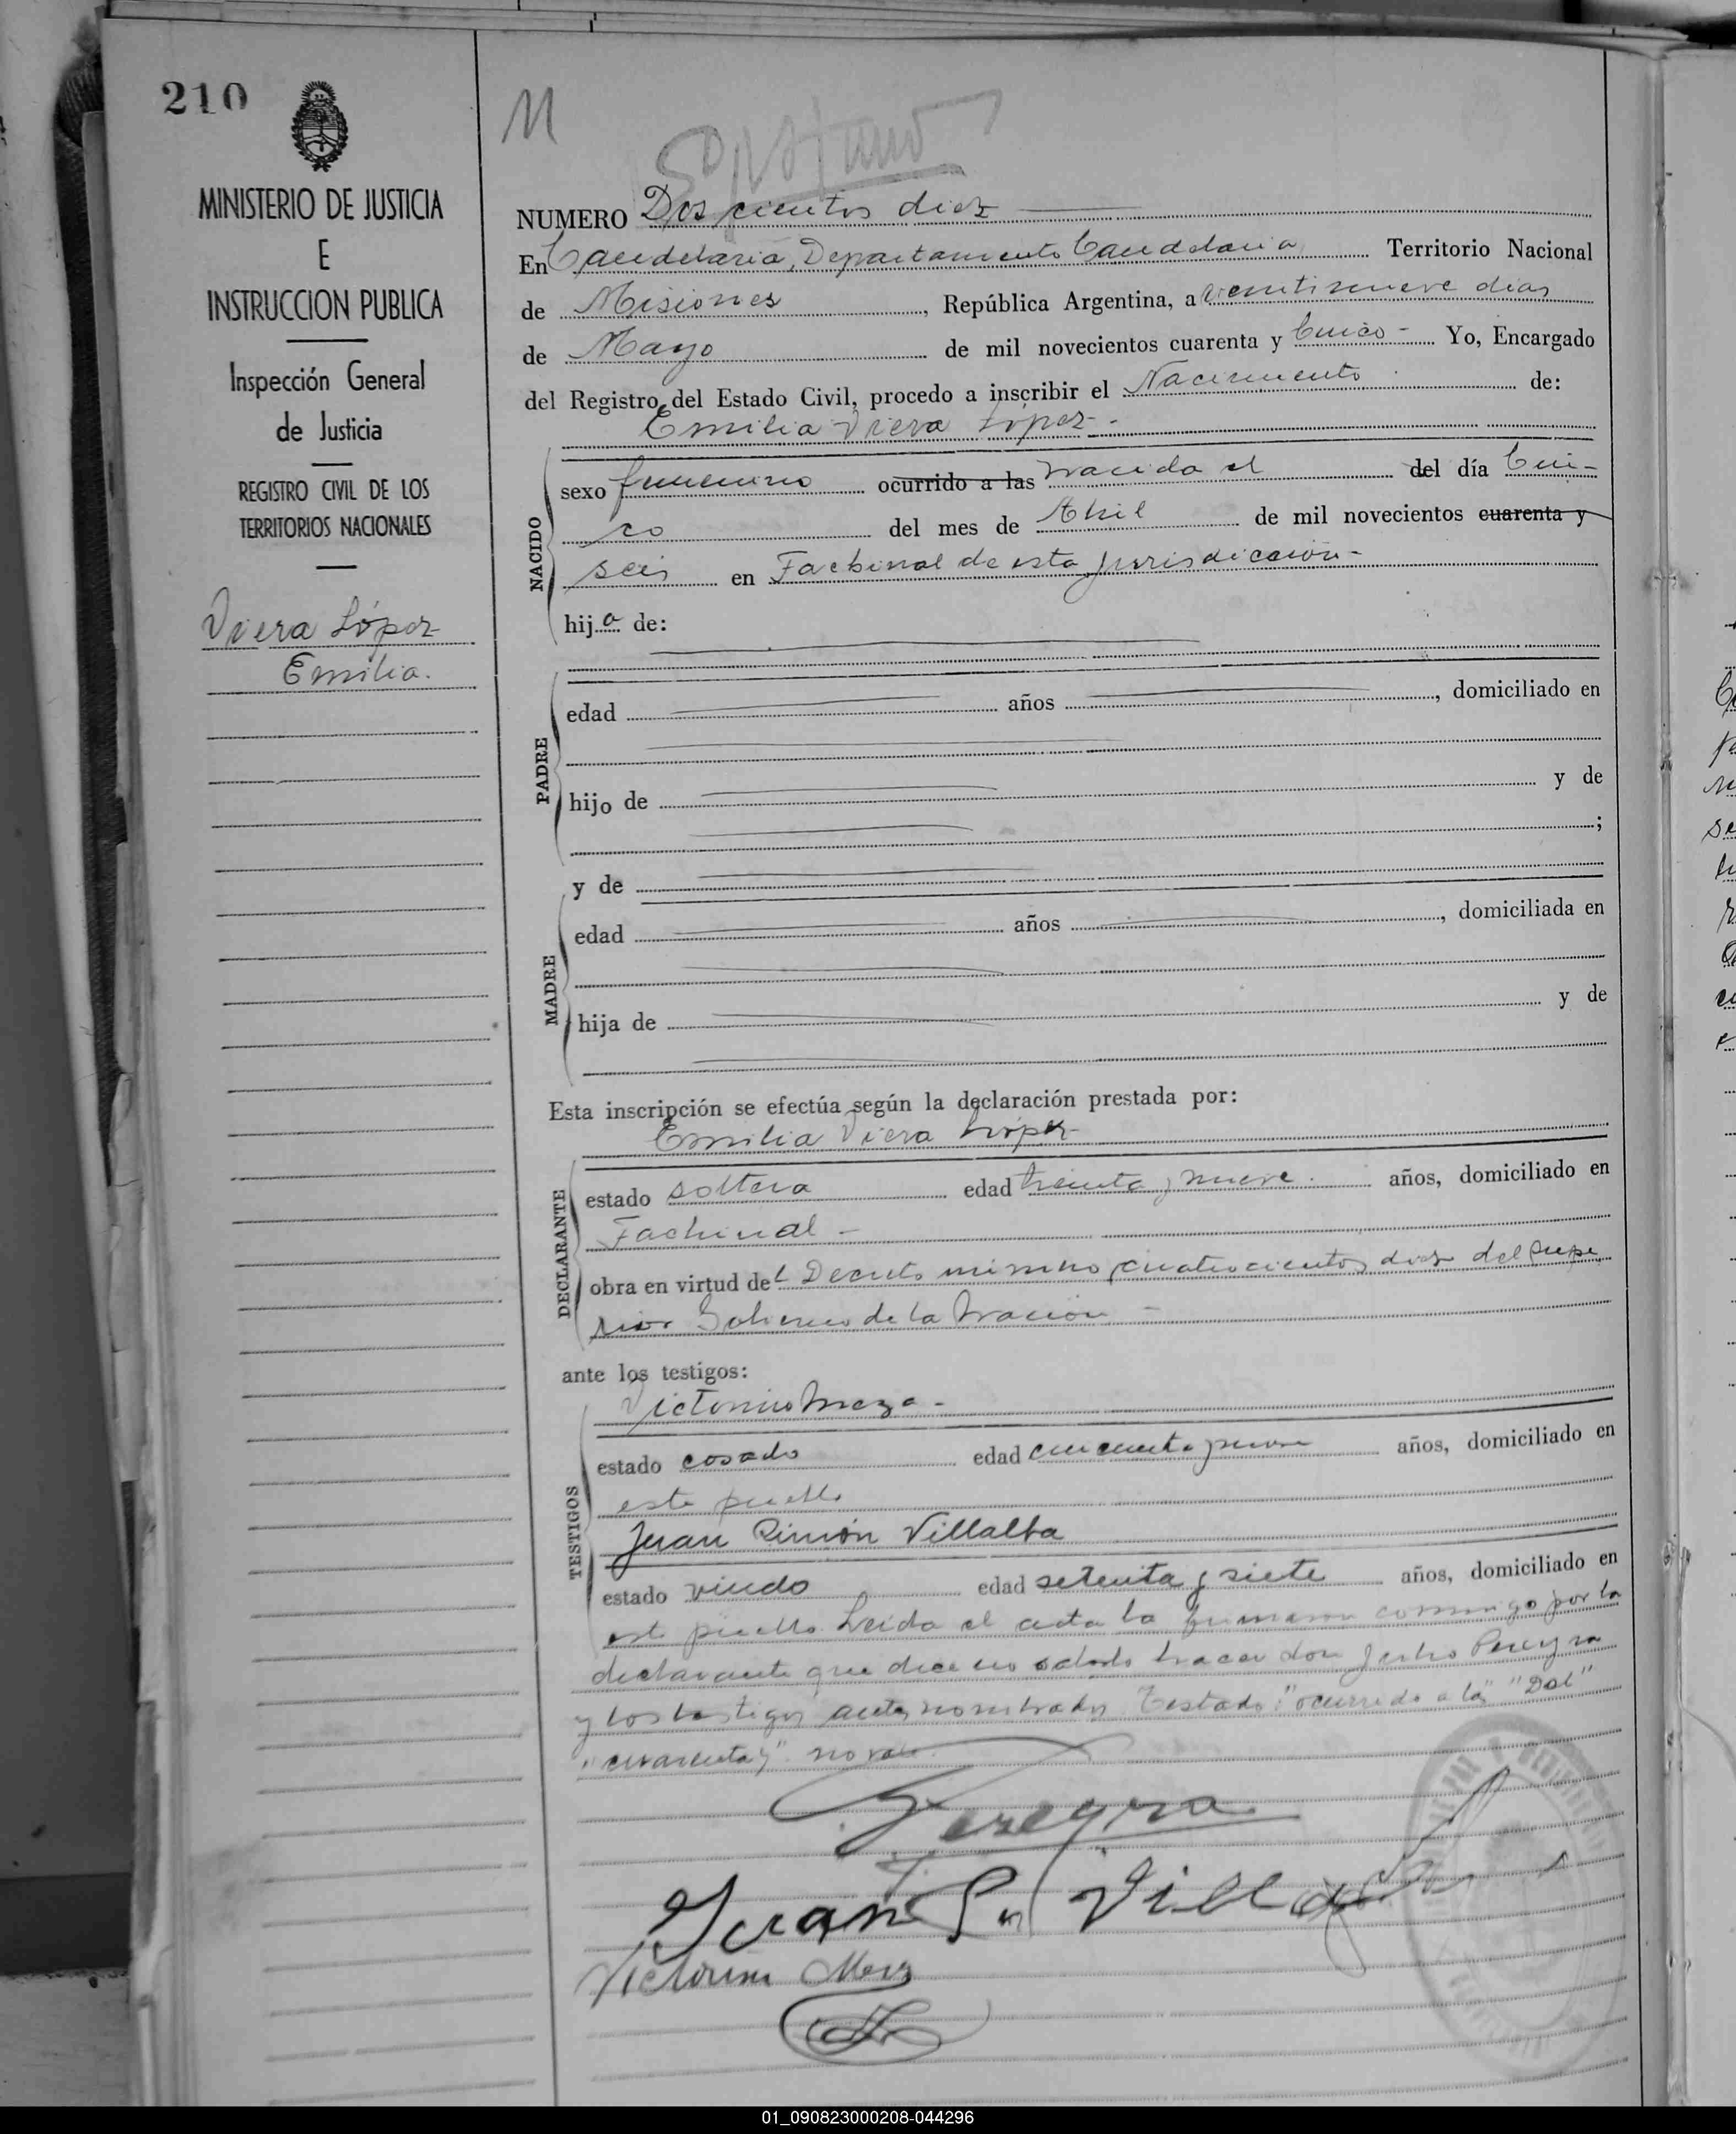 210
MINISTERIO DE JUSTICIA
E
INSTRUCCION PUBLICA
Inspección General
de Justicia
REGISTRO CIVIL DE LOS
TERRITORIOS NACIONALES
Viera López
Emilia.
NUMERO Dos cientos diez
En Candelaria, Departamento Candelaria Territorio Nacional
de Misiones, República Argentina, a veintinueve dias
de Mayo de mil novecientos cuarenta y Cinco - Yo, Encargado
del Registro del Estado Civil, procedo a inscribir el Nacimiento de:
Emilia Viera López -
NACIDO
sexo femenino ocurrido a las nacida el del día Cin-
co del mes de Abril de mil novecientos cuarenta y
seis en Fachinal de esta jurisdicción -
hija de:
PADRE
edad años, domiciliado en
hijo de y de
;
y de
MADRE
edad años, domiciliada en
hija de y de
Esta inscripción se efectúa según la declaración prestada por:
Emilia Viera López
DECLARANTE
estado soltera edad treinta y nueve. años, domiciliado en
Fachinal -
obra en virtud del Decreto número cuatrocientos doz del Supe
rior Gobierno de la Nación -
ante los testigos:
Victorino Meza -
TESTIGOS
estado casado edad cincuenta y nueve años, domiciliado en
este pueblo
Juan Simón Villalba
estado viudo edad setenta y siete años, domiciliado en
este pueblo Leida el acta la firmaron conmigo por la
declarante que dice no saberlo hacer don Julio Pereyra
y los testigos antes nombrados Testado: "ocurrido a la" "Del"
"cuarenta y" no vale.
Pereyra
Juan S. Villalba
Victorino Meza
01_090823000208-044296